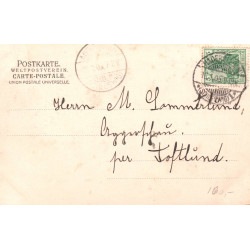 POSTKARTE.
WELTPOSTVEREIN.
CARTE-POSTALE
UNION POSTALE UNIVERSELLE.
Herrn M. Sommerlund,
Aggerschau,
per Toftlund.